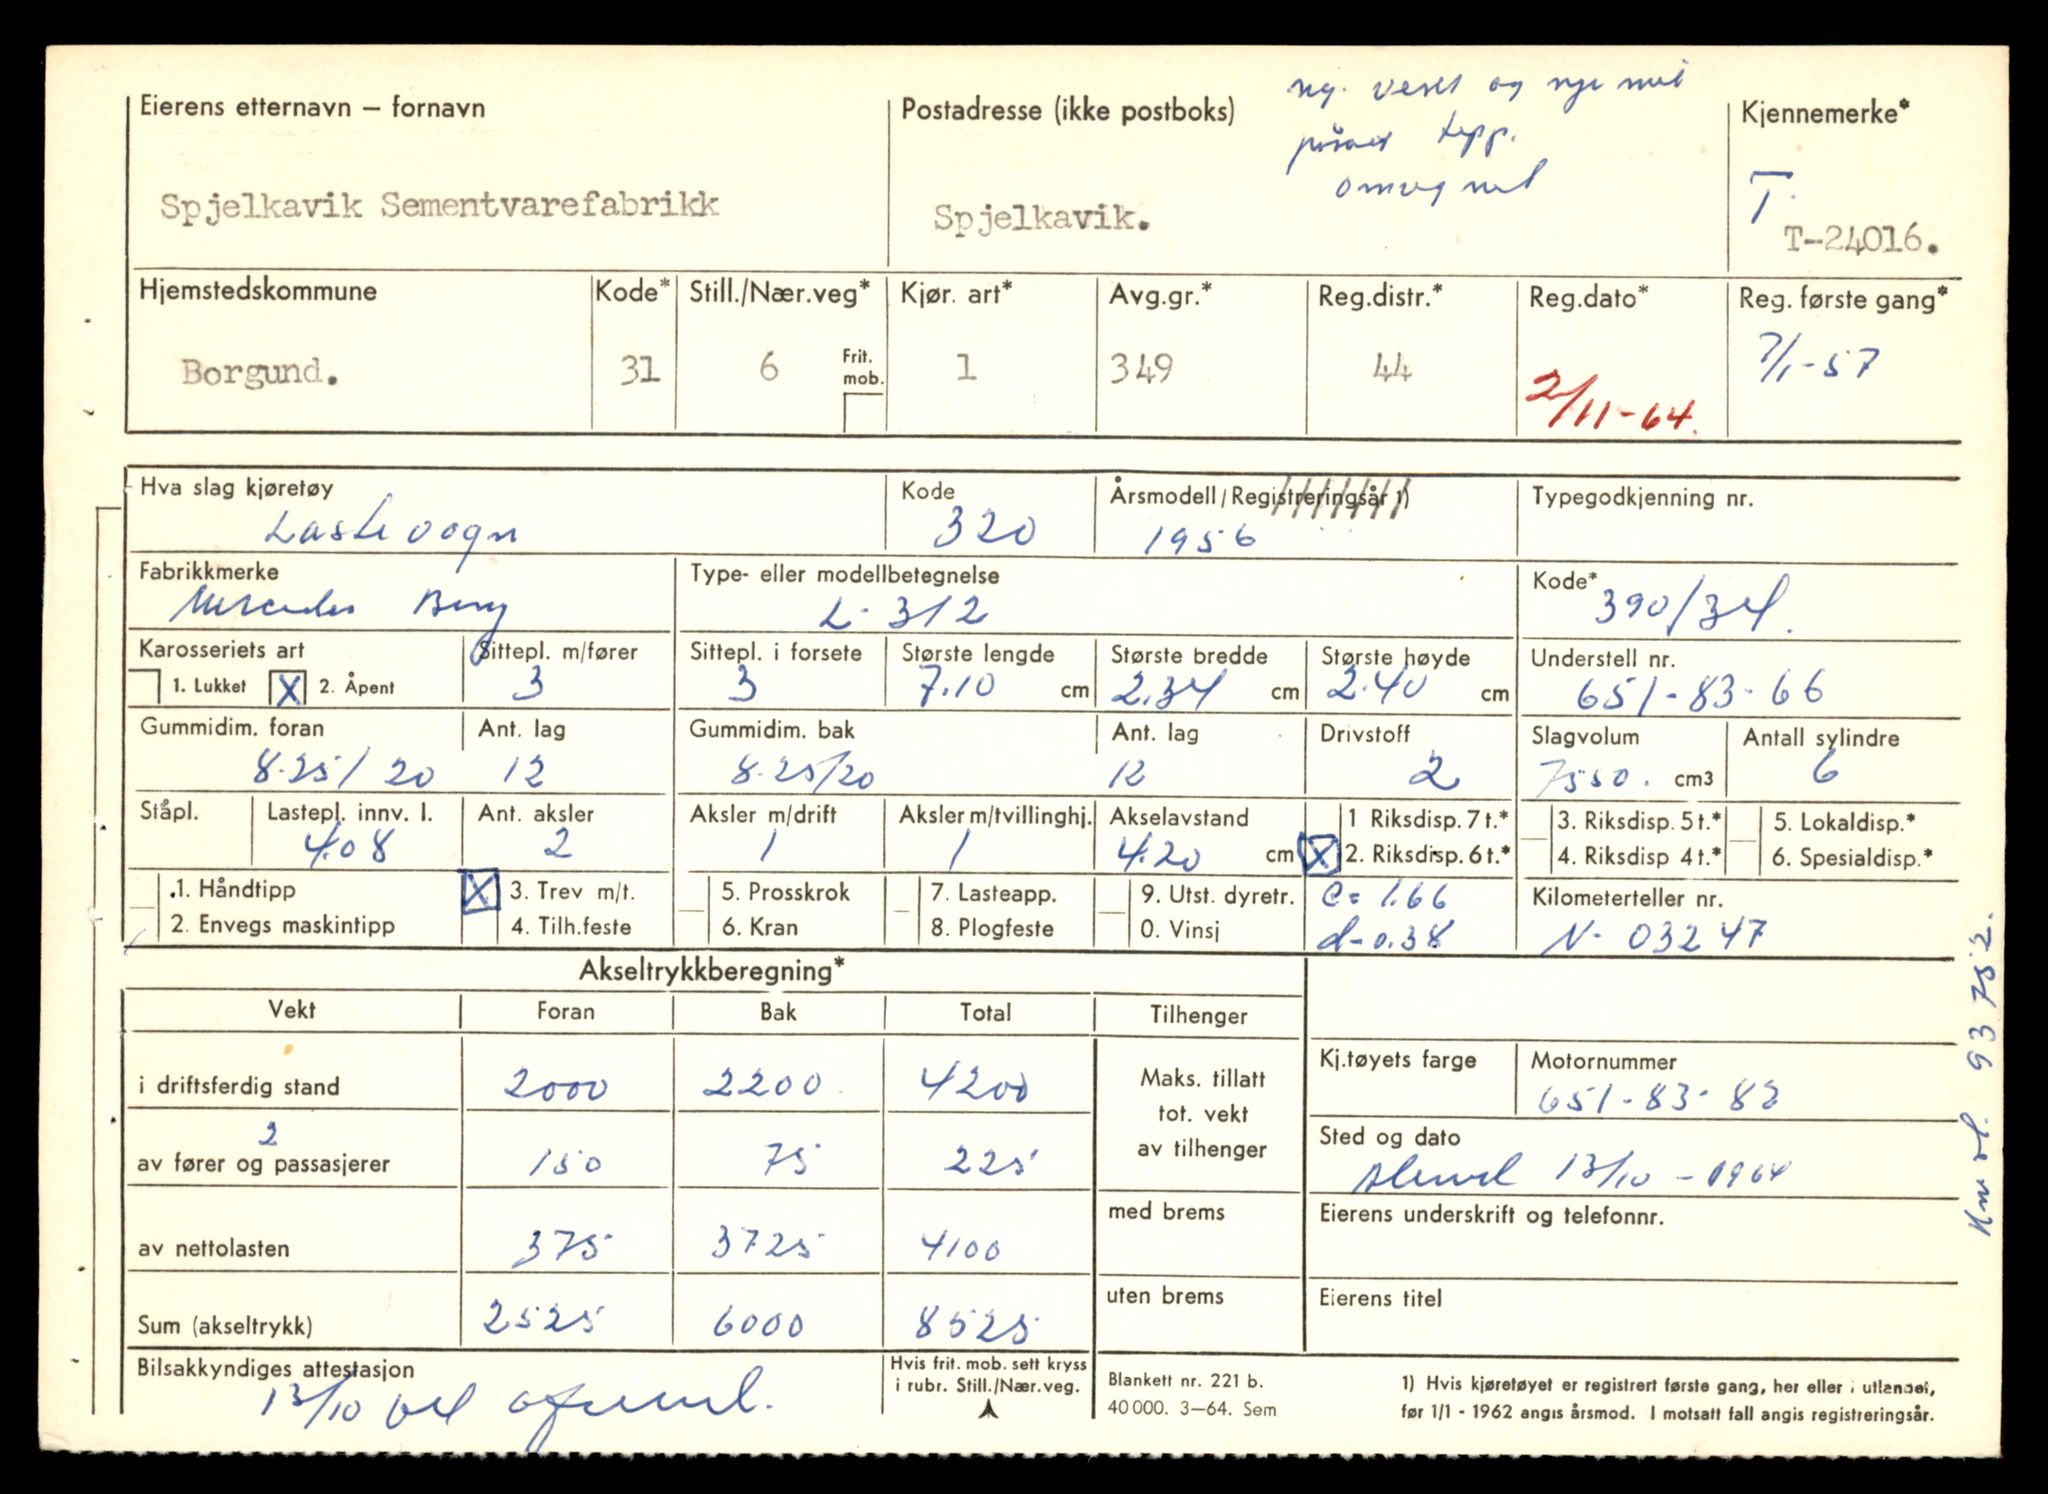 Eierens etternavn – fornavn
Postadresse (ikke postboks)
Kjennemerke*
og nye
T
Spjelkavik Sementvarefabrikk
Spjelkavik.
T-24016.
Hjemstedskommune
Kode*
Still./Nær.veg*
Kjør. art*
Avg.gr.*
Reg.distr.*
Reg.dato*
Reg. første gang*
Borgund.
31
6
Frit. mob.
1
349
44
2/11-64.
7/1-57
Hva slag kjøretøy
Kode
Årsmodell/Registreringsår 1)
Typegodkjenning nr.
Lastevogn
320
1956
Fabrikkmerke
Type- eller modellbetegnelse
Kode*
Mercedes Benz
L-312
390/34.
Karosseriets art
Sittepl. m/fører
Sittepl. i forsete
Største lengde
Største bredde
Største høyde
Understell nr.
1. Lukket
X 2. Åpent
3
3
7.10 cm
2.34 cm
2.40 cm
651-83-66
Gummidim. foran
Ant. lag
Gummidim. bak
Ant. lag
Drivstoff
Slagvolum
Antall sylindre
8.25/20
12
8.25/20
12
2
7550. cm3
6
Ståpl.
Lastepl. innv. l.
Ant. aksler
Aksler m/drift
Aksler m/tvillinghj.
Akselavstand
1 Riksdisp. 7 t.*
3. Riksdisp. 5 t.*
5. Lokaldisp.*
4.08
2
1
1
4.20 cm
X 2. Riksdisp. 6 t.*
4. Riksdisp 4 t.*
6. Spesialdisp.*
1. Håndtipp
X 3. Trev m/t.
5. Prosskrok
7. Lasteapp.
9. Utst. dyretr.
c= 1.66
Kilometerteller nr.
2. Envegs maskintipp
4. Tilh.feste
6. Kran
8. Plogfeste
0. Vinsj
d-0.38
N- 03247
Akseltrykkberegning*
Vekt
Foran
Bak
Total
Tilhenger
i driftsferdig stand
2000
2200
4200
Maks. tillatt
tot. vekt
av tilhenger
Kj.tøyets farge
Motornummer
651-83-82
2
av fører og passasjerer
150
75
225
Sted og dato
13/10-1964
av nettolasten
375
3725
4100
med brems
Eierens underskrift og telefonnr.
Sum (akseltrykk)
2525
6000
8525
uten brems
Eierens titel
Bilsakkyndiges attestasjon
13/10
Hvis frit. mob. sett kryss
i rubr. Still./Nær.veg.
Blankett nr. 221 b.
40 000. 3–64. Sem
1) Hvis kjøretøyet er registrert første gang, her eller i utlandet,
før 1/1 - 1962 angis årsmod. I motsatt fall angis registreringsår.
93752.